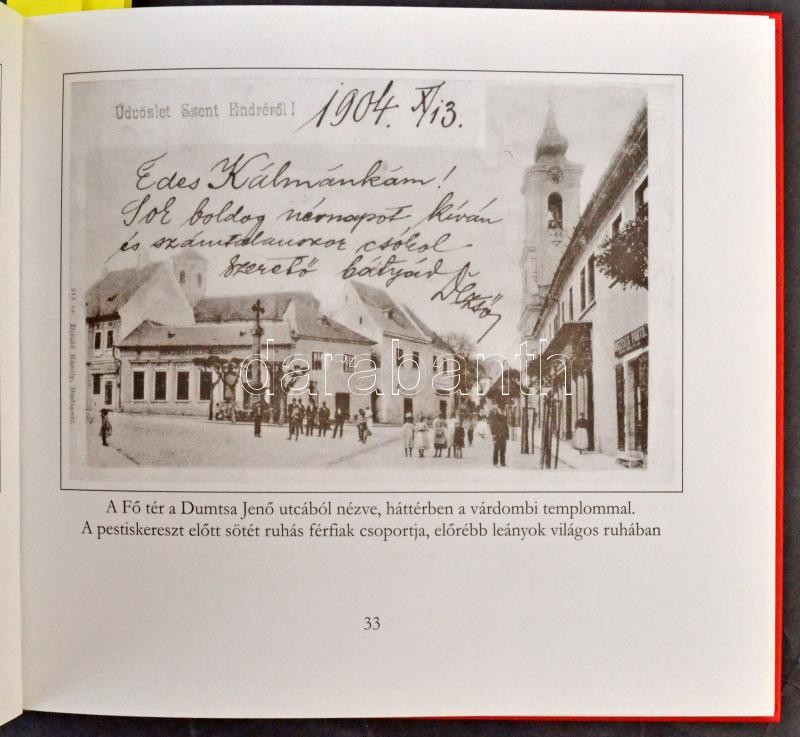 Üdvözlet Szent Endréről!
1904. X/13.
Édes Kálmánkám!
Sok boldog névnapot kíván
és számtalanszor csókol
szerető bátyád
Dezső
Divald Károly, Budapest.
darabanth
A Fő tér a Dumtsa Jenő utcából nézve, háttérben a várdombi templommal.
A pestiskereszt előtt sötét ruhás férfiak csoportja, előrébb leányok világos ruhában
33